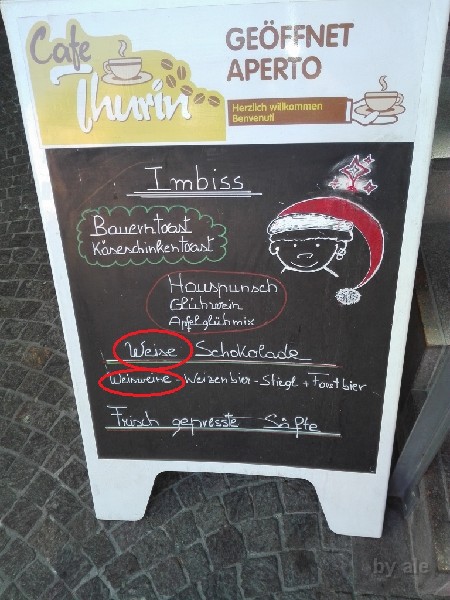 Cafe
Thurin
GEÖFFNET
APERTO
Herzlich willkommen
Benvenuti
Imbiss
Bauerntoast
Käseschinkentoast
Hauspunsch
Glühwein
Apfelglühmix
Weise Schokolade
Weisweine - Weizenbier - Stiegl + Forstbier
Frisch gepresste Säfte
by ale